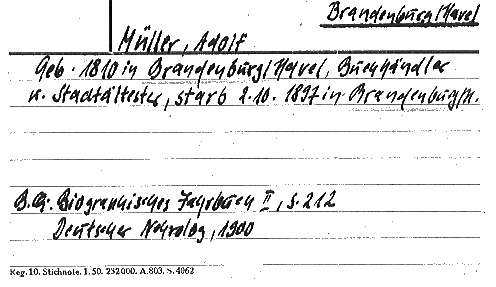 Brandenburg/Havel
Müller, Adolf
Geb. 1810 in Brandenburg/Havel, Buchhändler
u. Stadtältester, starb 2.10.1897 in Brandenburg/H.
B.G: Biographisches Jahrbuch II, S. 212
Deutscher Nekrolog, 1900
Reg. 10. Stichnote. 1. 50. 232000. A. 803. S. 4062